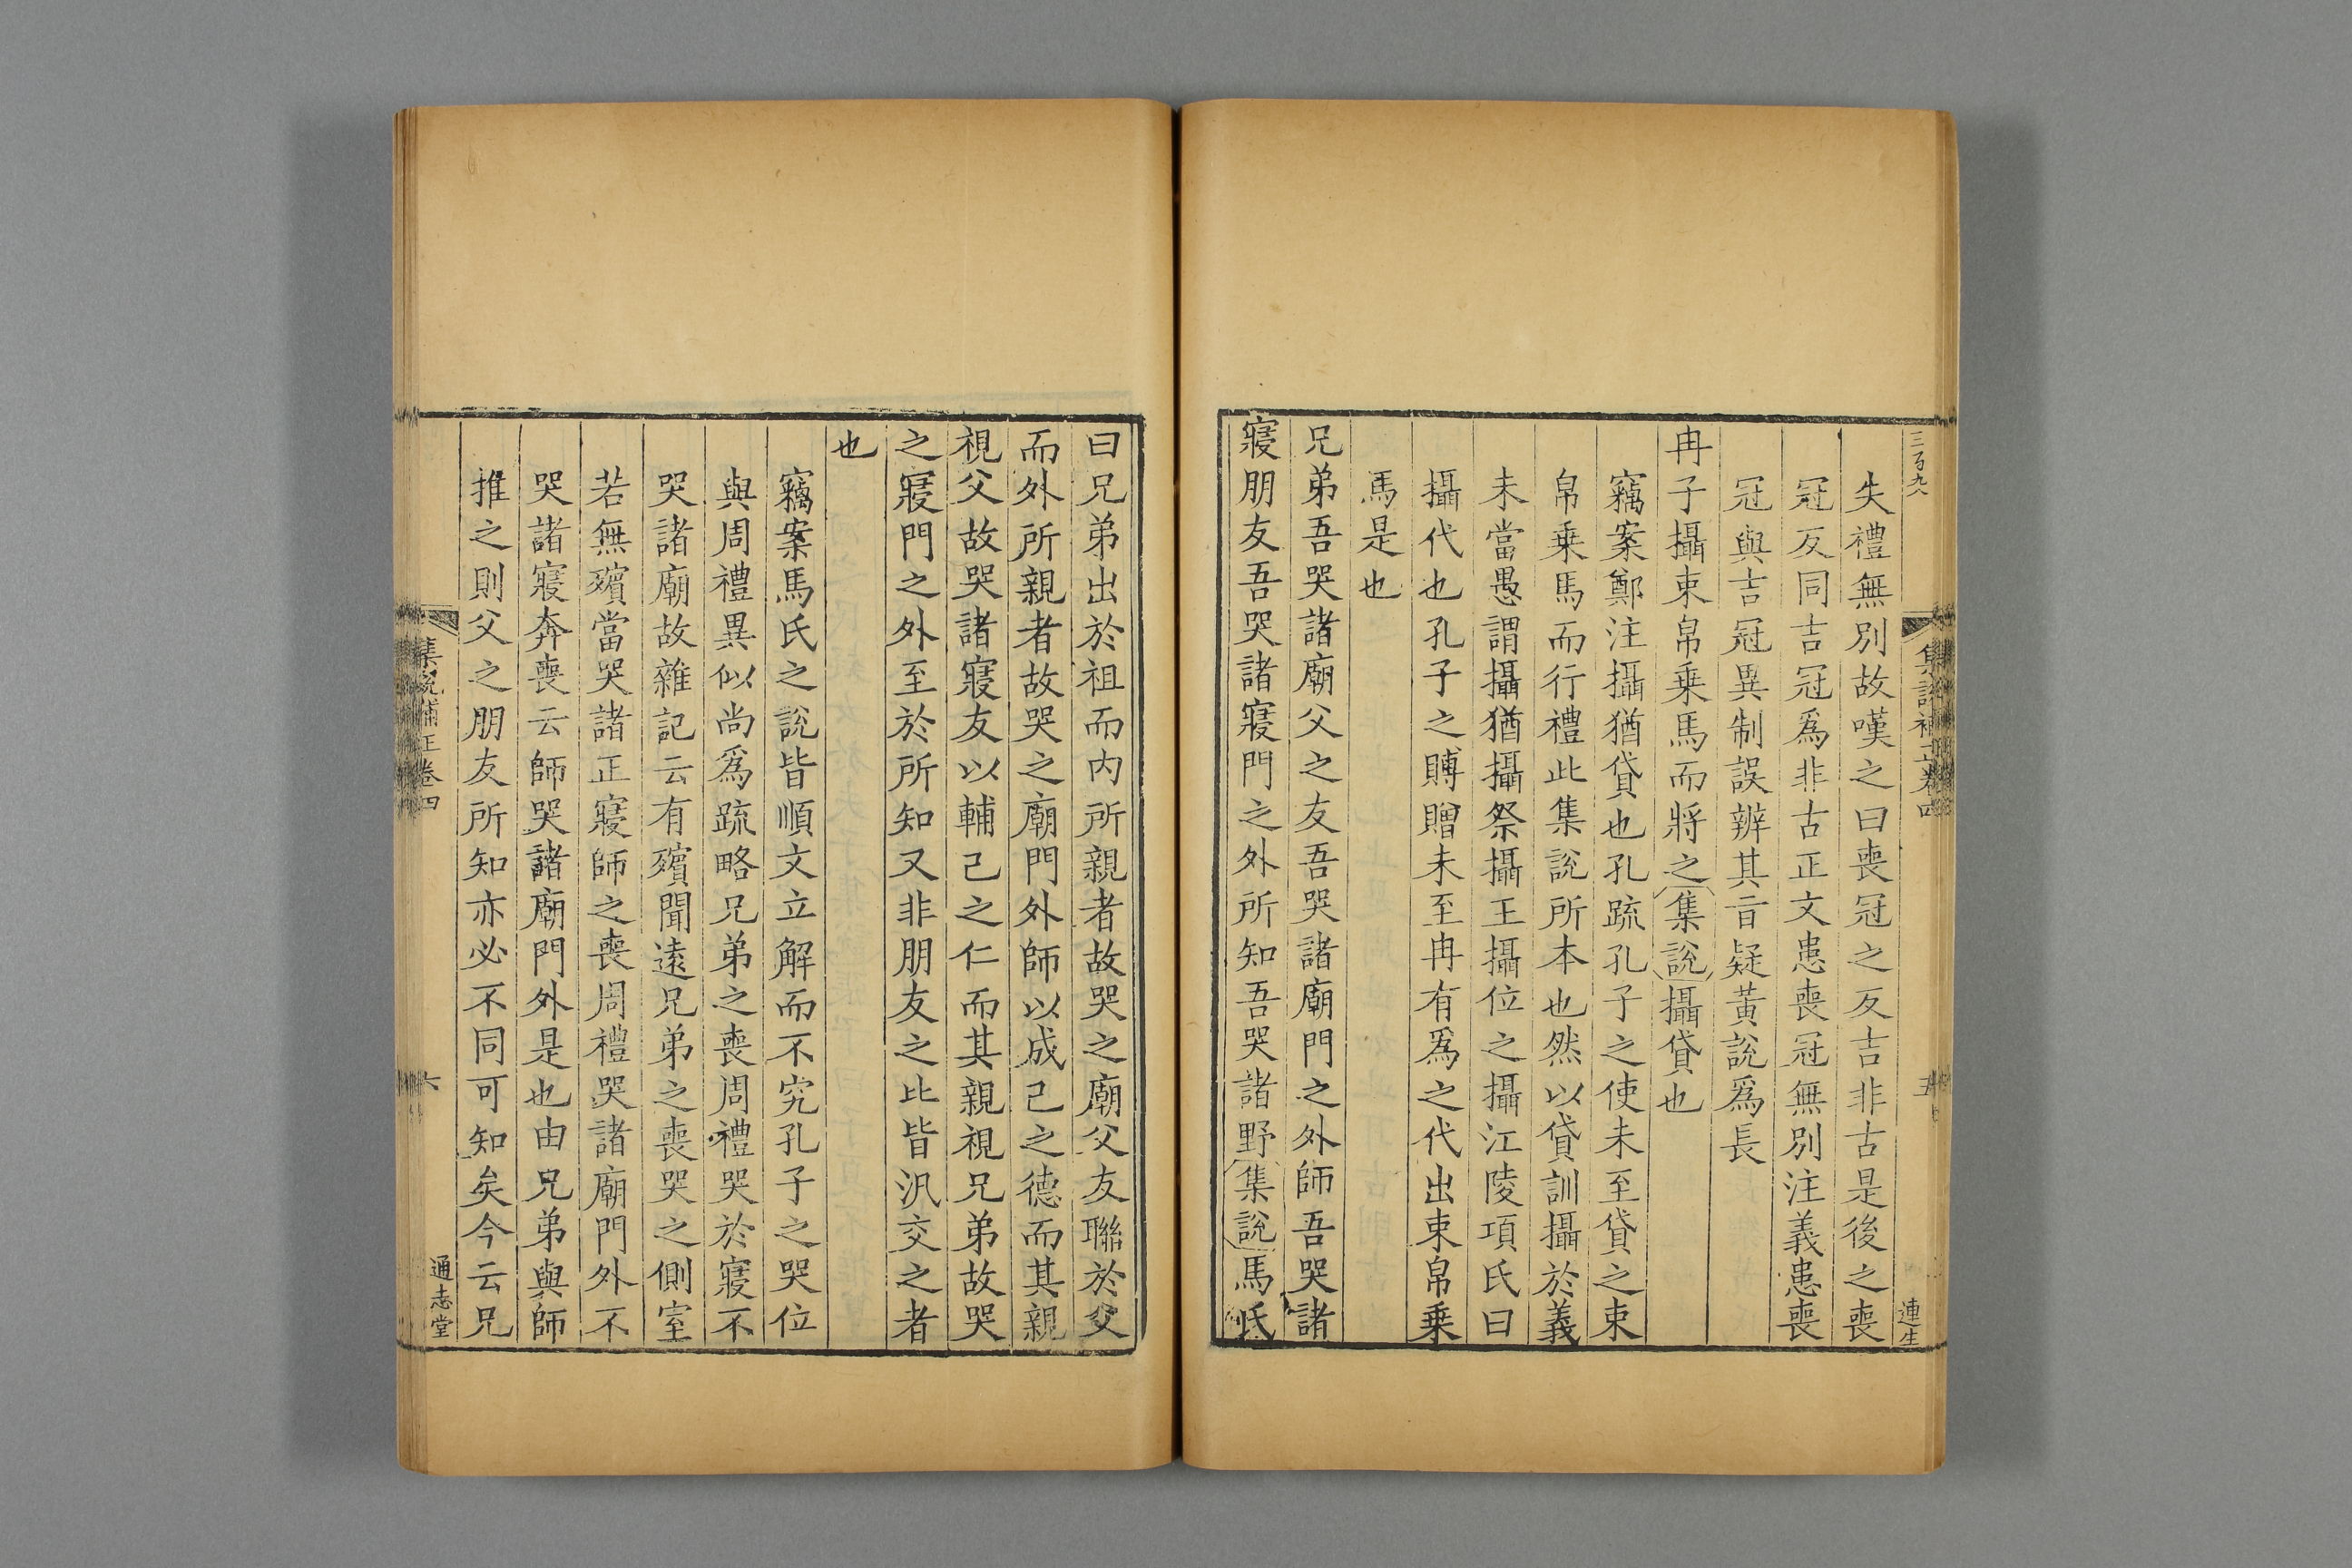 三百九八
失禮無別故嘆之曰喪冠之反吉非古是後之喪
冠反同吉冠爲非古正文患喪冠無別注義患喪
冠與吉冠異制誤辨其音疑黃說爲長
冉子攝束帛乗馬而將之集說攝貸也
竊案鄭注攝猶貸也孔疏孔子之使未至貸之束
帛乗馬而行禮此集說所本也然以貸訓攝於義
未當愚謂攝猶攝祭攝王攝位之攝江陵項氏曰
攝代也孔子之賻贈未至冉有爲之代出束帛乗
馬是也
兄弟吾哭諸廟父之友吾哭諸廟門之外師吾哭諸
寢朋友吾哭諸寢門之外所知吾哭諸野集說馬氏
集說補正卷四
五
連生
曰兄弟出於祖而內所親者故哭之廟父友聯於父
而外所親者故哭之廟門外師以成己之德而其親
視父故哭諸寢友以輔己之仁而其親視兄弟故哭
之寢門之外至於所知又非朋友之比皆汎交之者
也
竊案馬氏之說皆順文立解而不究孔子之哭位
與周禮異似尚爲疏略兄弟之喪周禮哭於寢不
哭諸廟故雜記云有殯聞遠兄弟之喪哭之側室
若無殯當哭諸正寢師之喪周禮哭諸廟門外不
哭諸寢奔喪云師哭諸廟門外是也由兄弟與師
推之則父之朋友所知亦必不同可知矣今云兄
集說補正卷四
六
通志堂